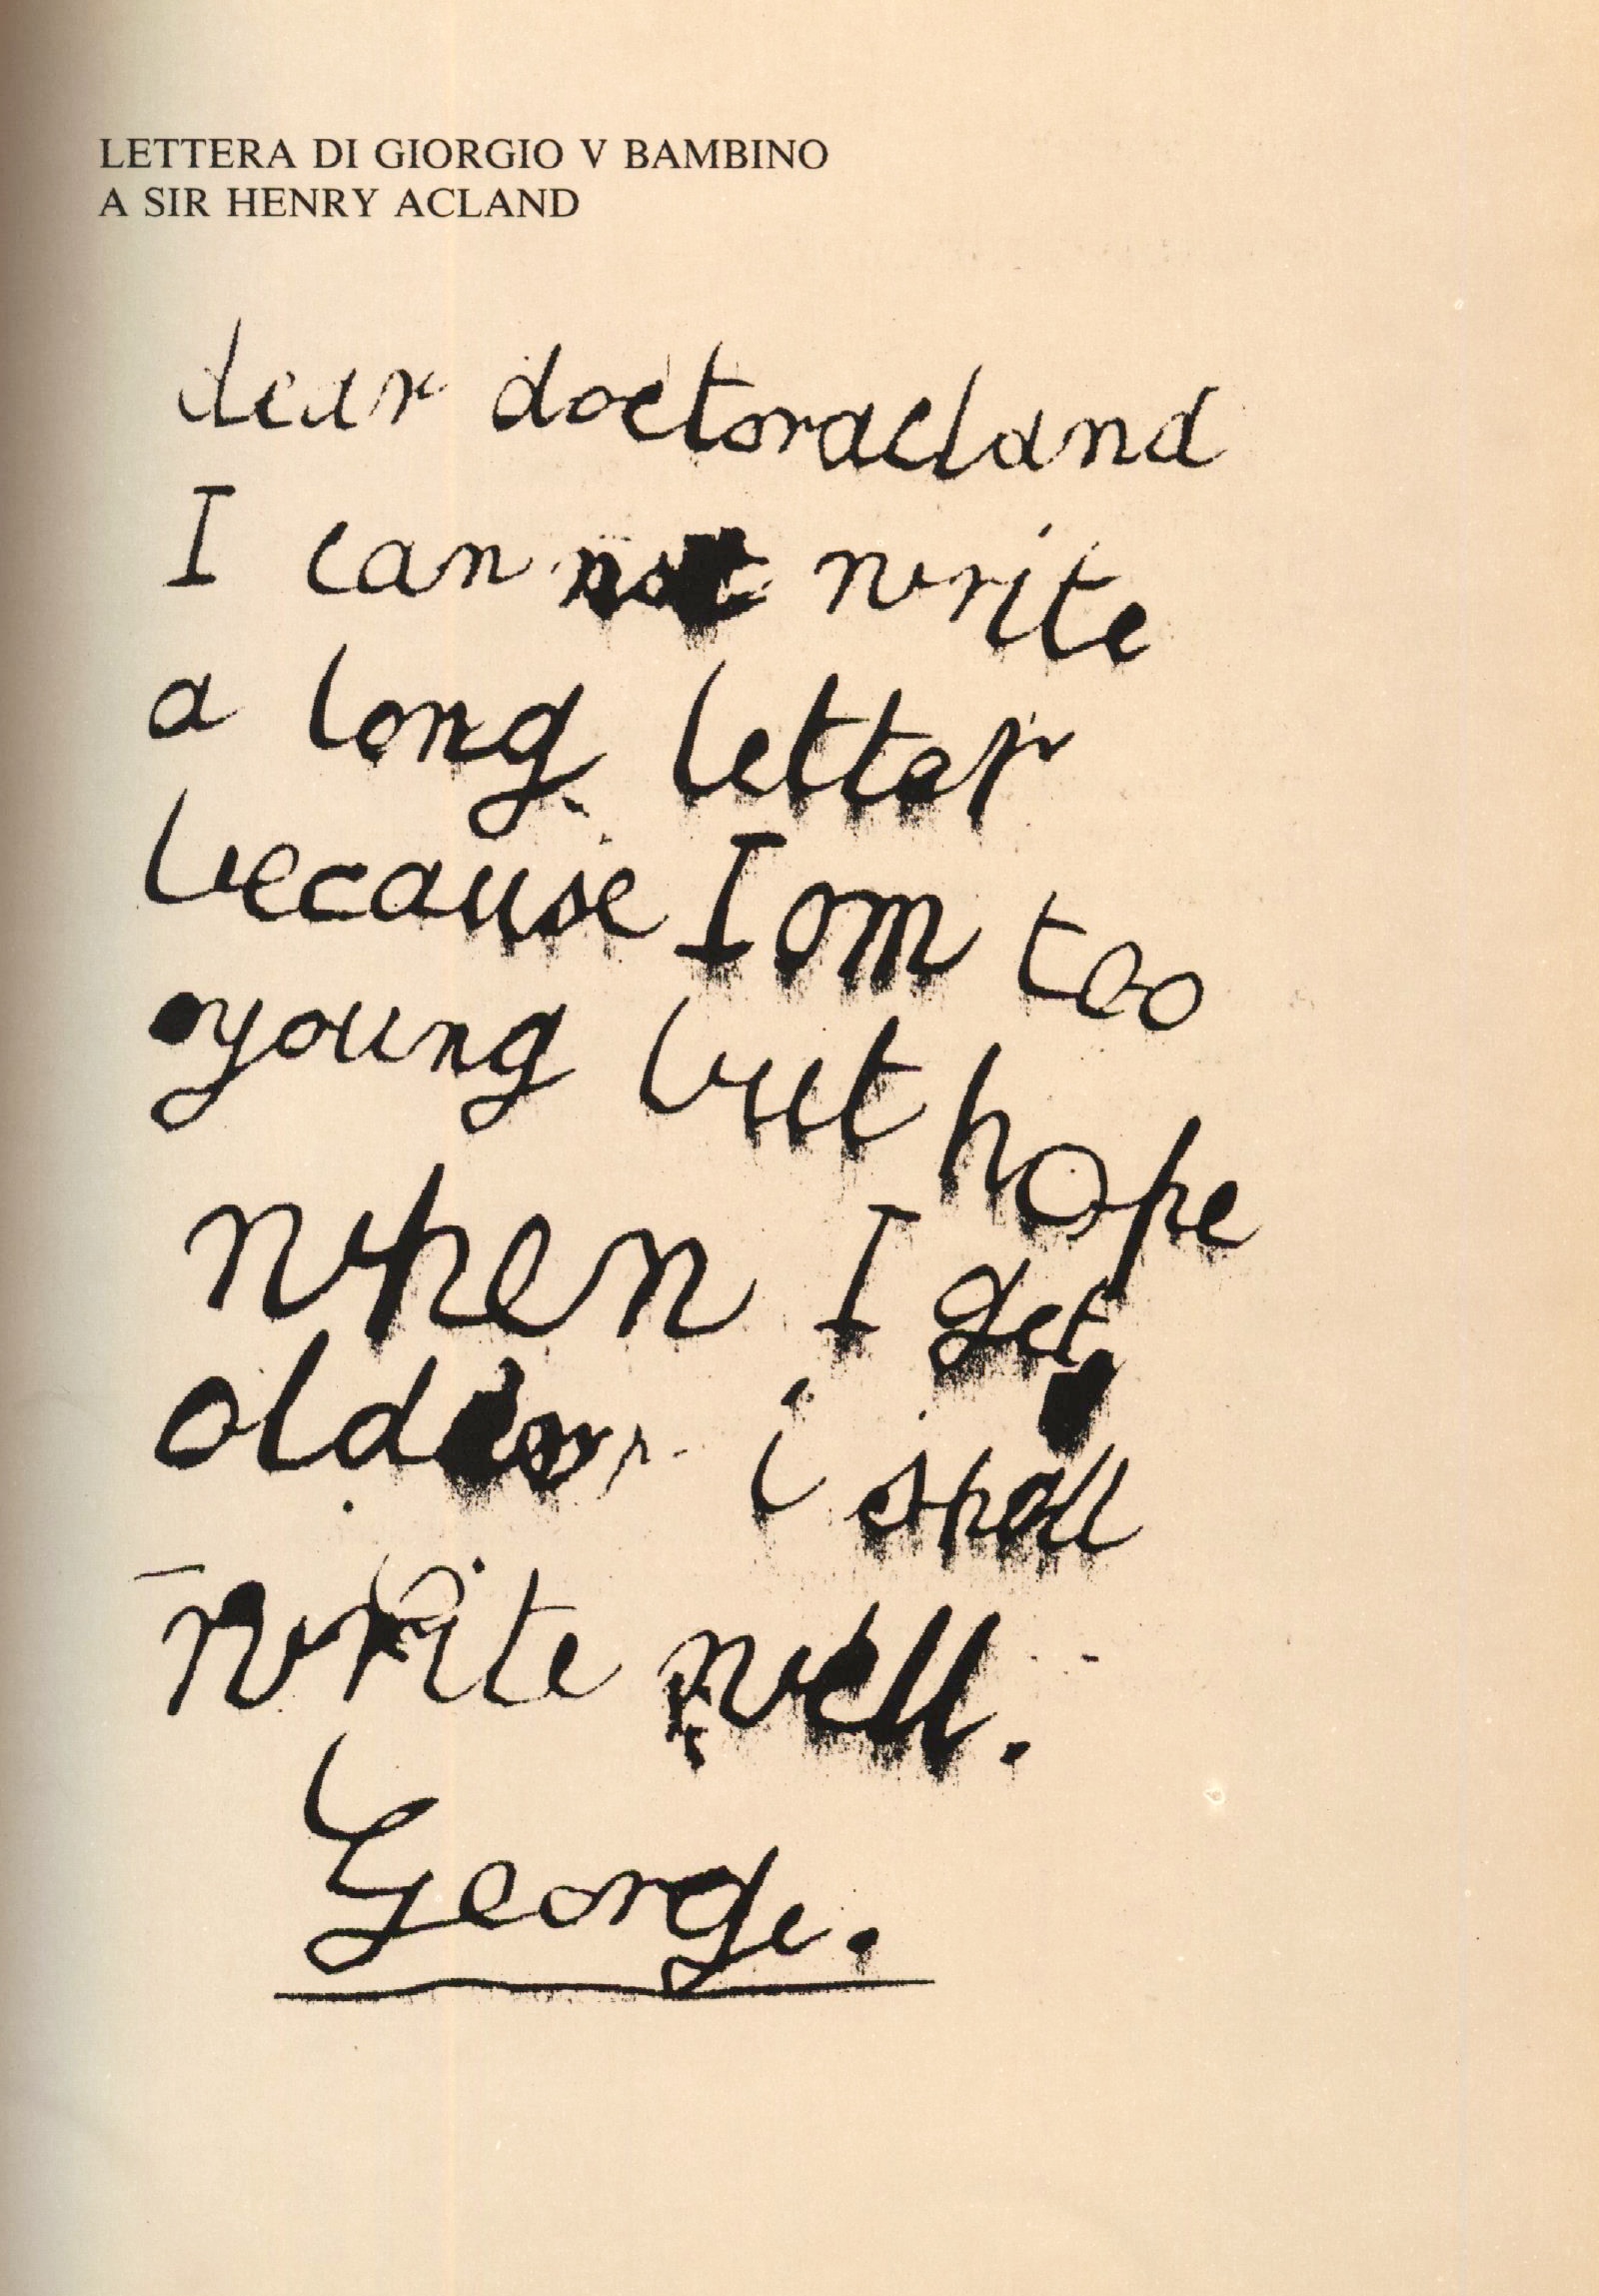 LETTERA DI GIORGIO V BAMBINO
A SIR HENRY ACLAND
dear doctoracland
I can not write
a long letter
because I am too
young but hope
when I get
older i shall
write well.
George.